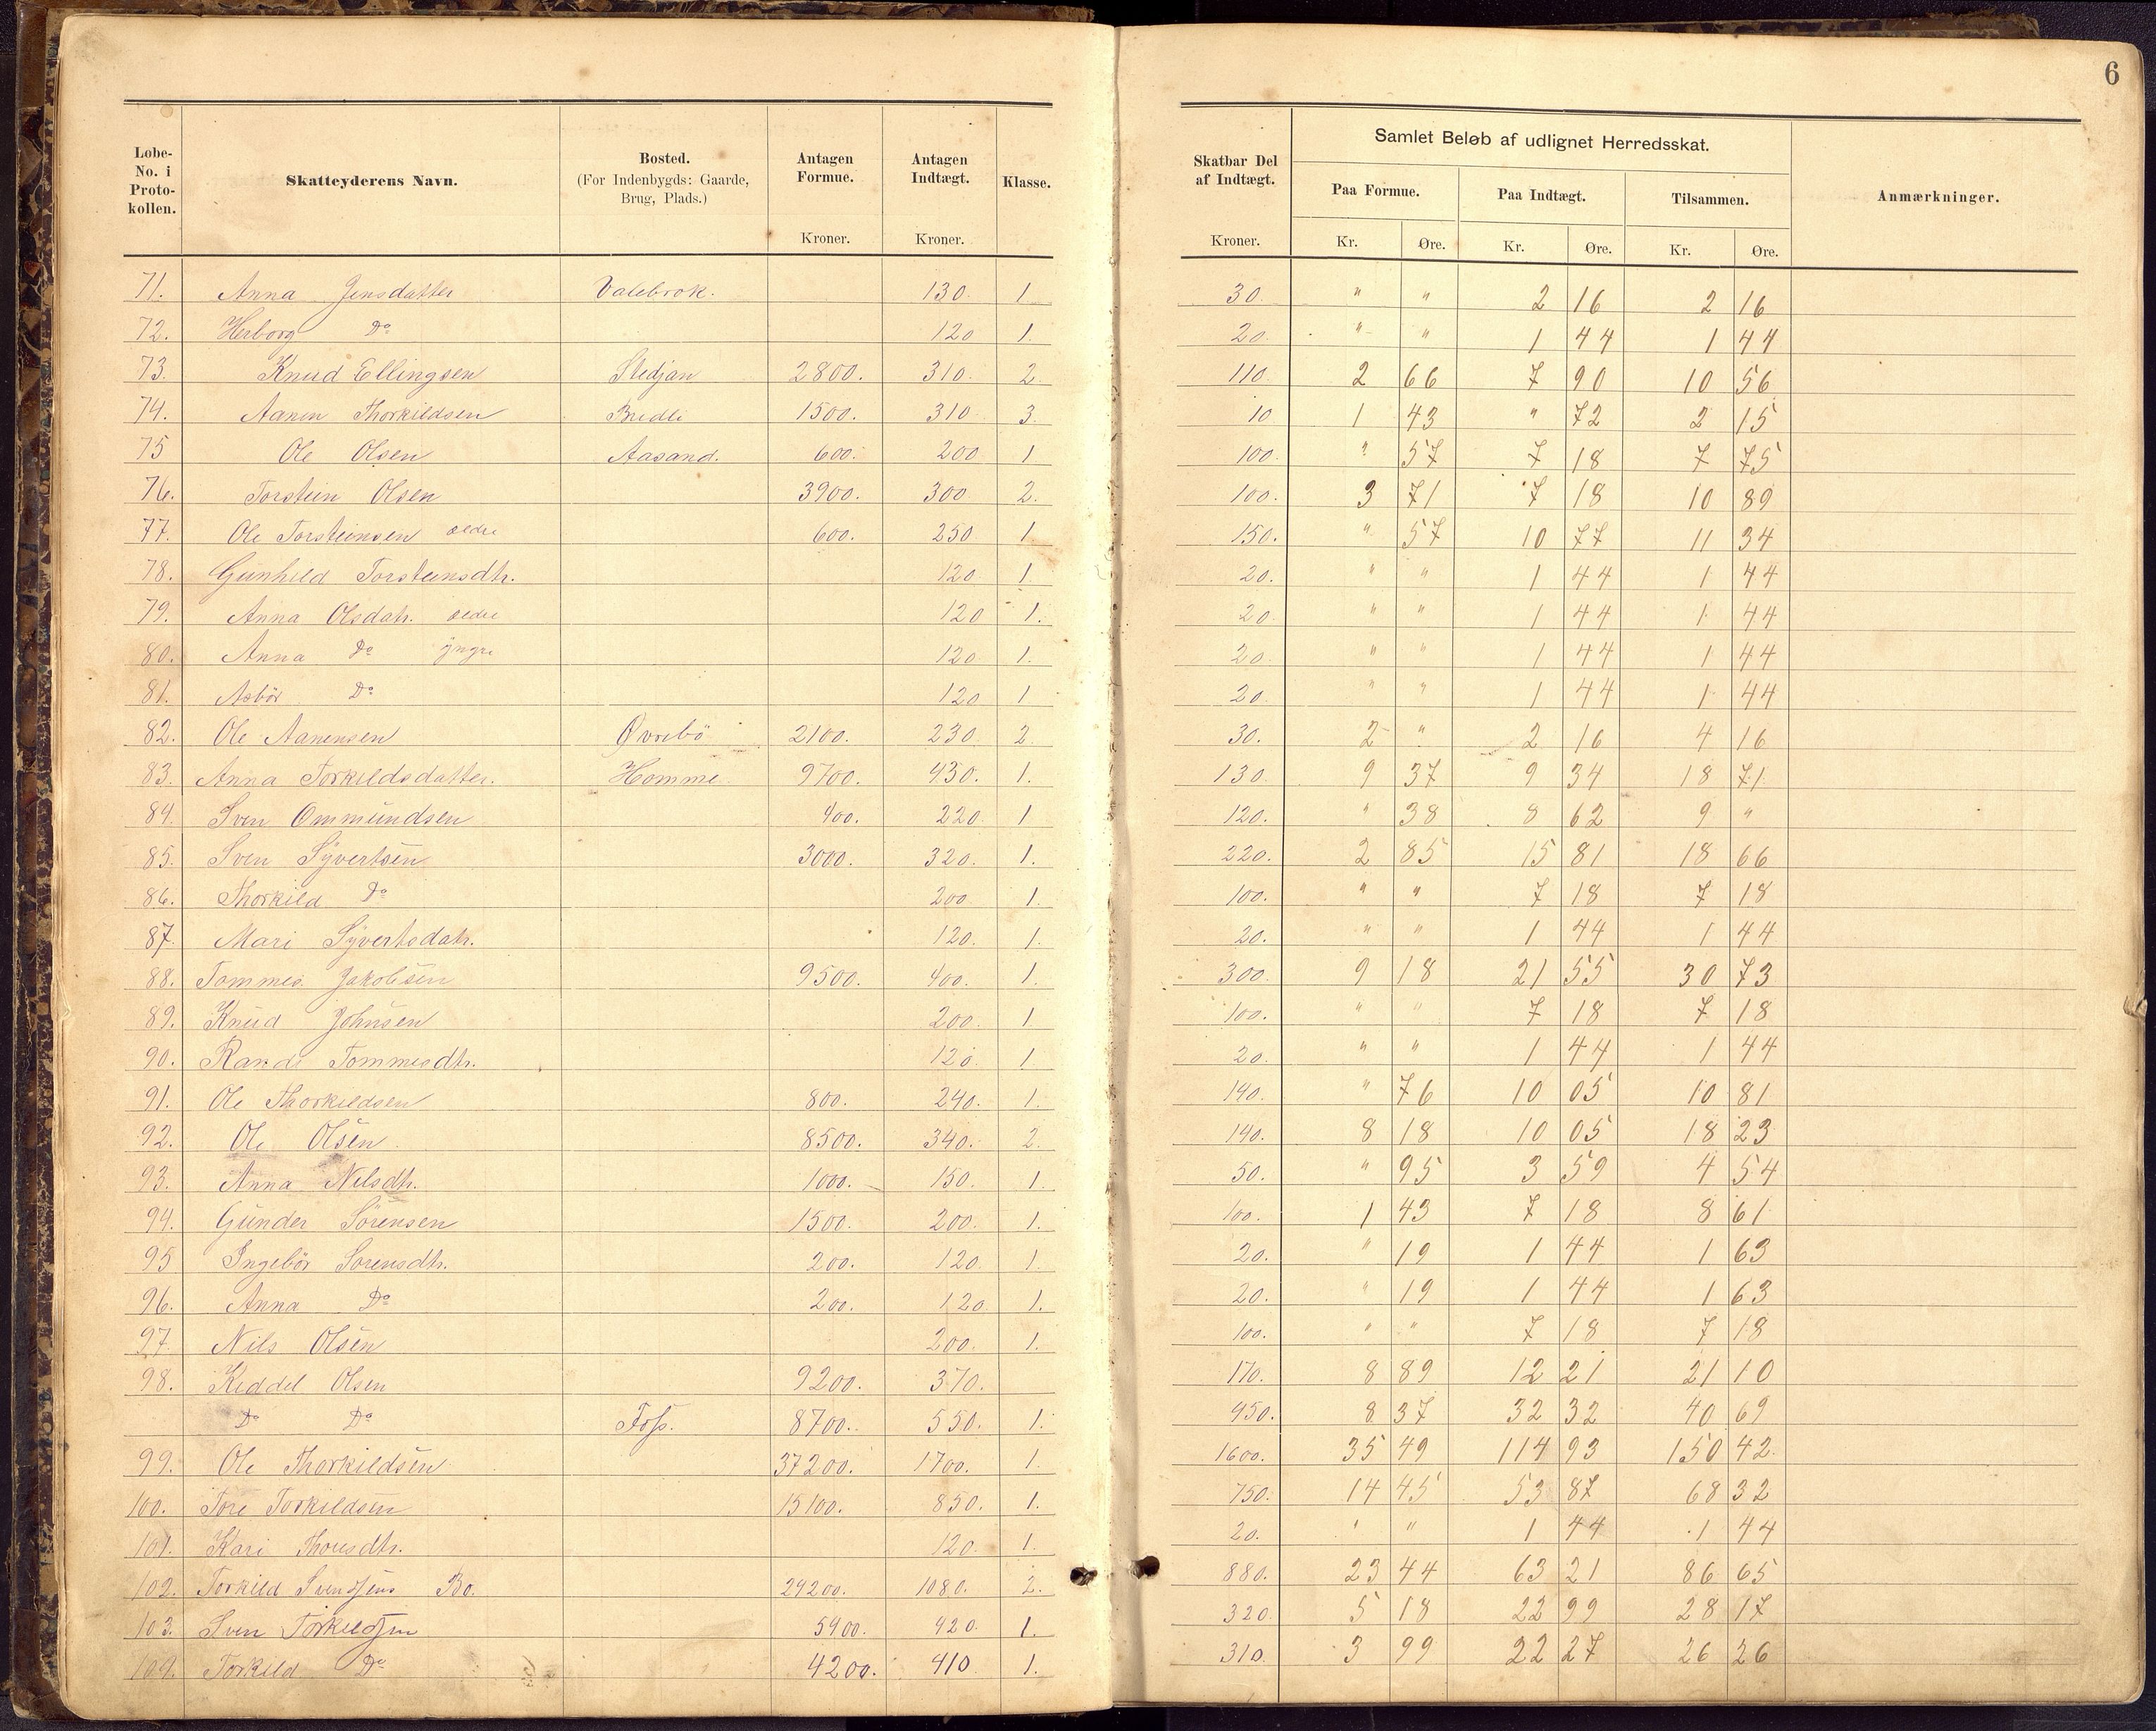 6
Løbe-No. i Protokollen. Skatteyderens Navn. Bosted. (For Indenbygds: Gaarde, Brug, Plads.) Antagen Formue. Kroner. Antagen Indtægt. Kroner. Klasse. Skatbar Del af Indtægt. Kroner. Samlet Beløb af udlignet Herredsskat. Paa Formue. Kr. Øre. Paa Indtægt. Kr. Øre. Tilsammen. Kr. Øre. Anmærkninger.
71. Anna Jensdatter Valebrok. 130. 1. 30. " " 2 16 2 16
72. Herborg Do 120 1. 20. " " 1 44 1 44
73. Knud Ellingsen Stedjan 2800. 310. 2. 110. 2 66 7 90 10 56
74. Aanen Thorkildsen Bredli 1500. 310 3. 10 1 43 " 72 2 15
75 Ole Olsen Aasand. 600. 200 1 100. " 57 7 18 7 75
76. Torstein Olsen 3900. 300 2. 100. 3 71 7 18 10 89
77. Ole Torsteinsen ældre 600. 250 1 150. " 57 10 77 11 34
78. Gunhild Torsteinsdtr. 120 1. 20. " " 1 44 1 44
79. Anna Olsdatr. ældre 120 1. 20. " " 1 44 1 44
80. Anna Do yngre 120 1. 20. " " 1 44 1 44
81. Asbör Do 120 1 20. " " 1 44 1 44
82. Ole Aanensen Øvrebö 2100. 230 2 30. 2 " 2 16 4 16
83. Anna Torkildsdatter. Homme. 9700. 430. 1. 130. 9 37 9 34 18 71
84. Sven Ommundsen 400. 220. 1 120. " 38 8 62 9 "
85. Sven Syvertsen 3000. 320. 1. 220. 2 85 15 81 18 66
86. Thorkild Do 200 1. 100. " " 7 18 7 18
87. Mari Syvertsdatr. 120. 1. 20. " " 1 44 1 44
88. Tommes Jakobsen 9500. 400. 1. 300. 9 18 21 55 30 73
89. Knud Johnsen 200. 1 100. " " 7 18 7 18
90. Rande Tommesdtr. 120. 1 20. " " 1 44 1 44
91. Ole Thorkildsen 800. 240. 1. 140. " 76 10 05 10 81
92. Ole Olsen 8500. 340. 2. 140. 8 18 10 05 18 23
93. Anna Nilsdtr. 1000. 150. 1. 50. " 95 3 59 4 54
94. Gunder Sörensen 1500. 200. 1. 100. 1 43 7 18 8 61
95 Ingebör Sorensdtr. 200. 120. 1. 20. " 19 1 44 1 63
96. Anna Do 200. 120. 1. 20. " 19 1 44 1 63
97. Nils Olsen 200. 1. 100. " " 7 18 7 18
98. Keddel Olsen 9200. 370. 170. 8 89 12 21 21 10
Do Do Foss. 8700. 550. 1. 450. 8 37 32 32 40 69
99. Ole Thorkildsen 37200. 1700. 1. 1600. 35 49 114 93 150 42.
100. Tore Torkildsen 15100. 850. 1. 750. 14 45 53 87 68 32
101. Kari Thoresdtr. 120. 1. 20. " " 1 44 1 44
102. Torkild Svendsens Bo. 24200. 1080. 2. 880. 23 44 63 21 86 65
103. Sven Torkildsen 5400. 420. 1. 320. 5 18 22 99 28 17
104. Torkild Do 4200. 410 1. 310 3 99 22 27 26 26